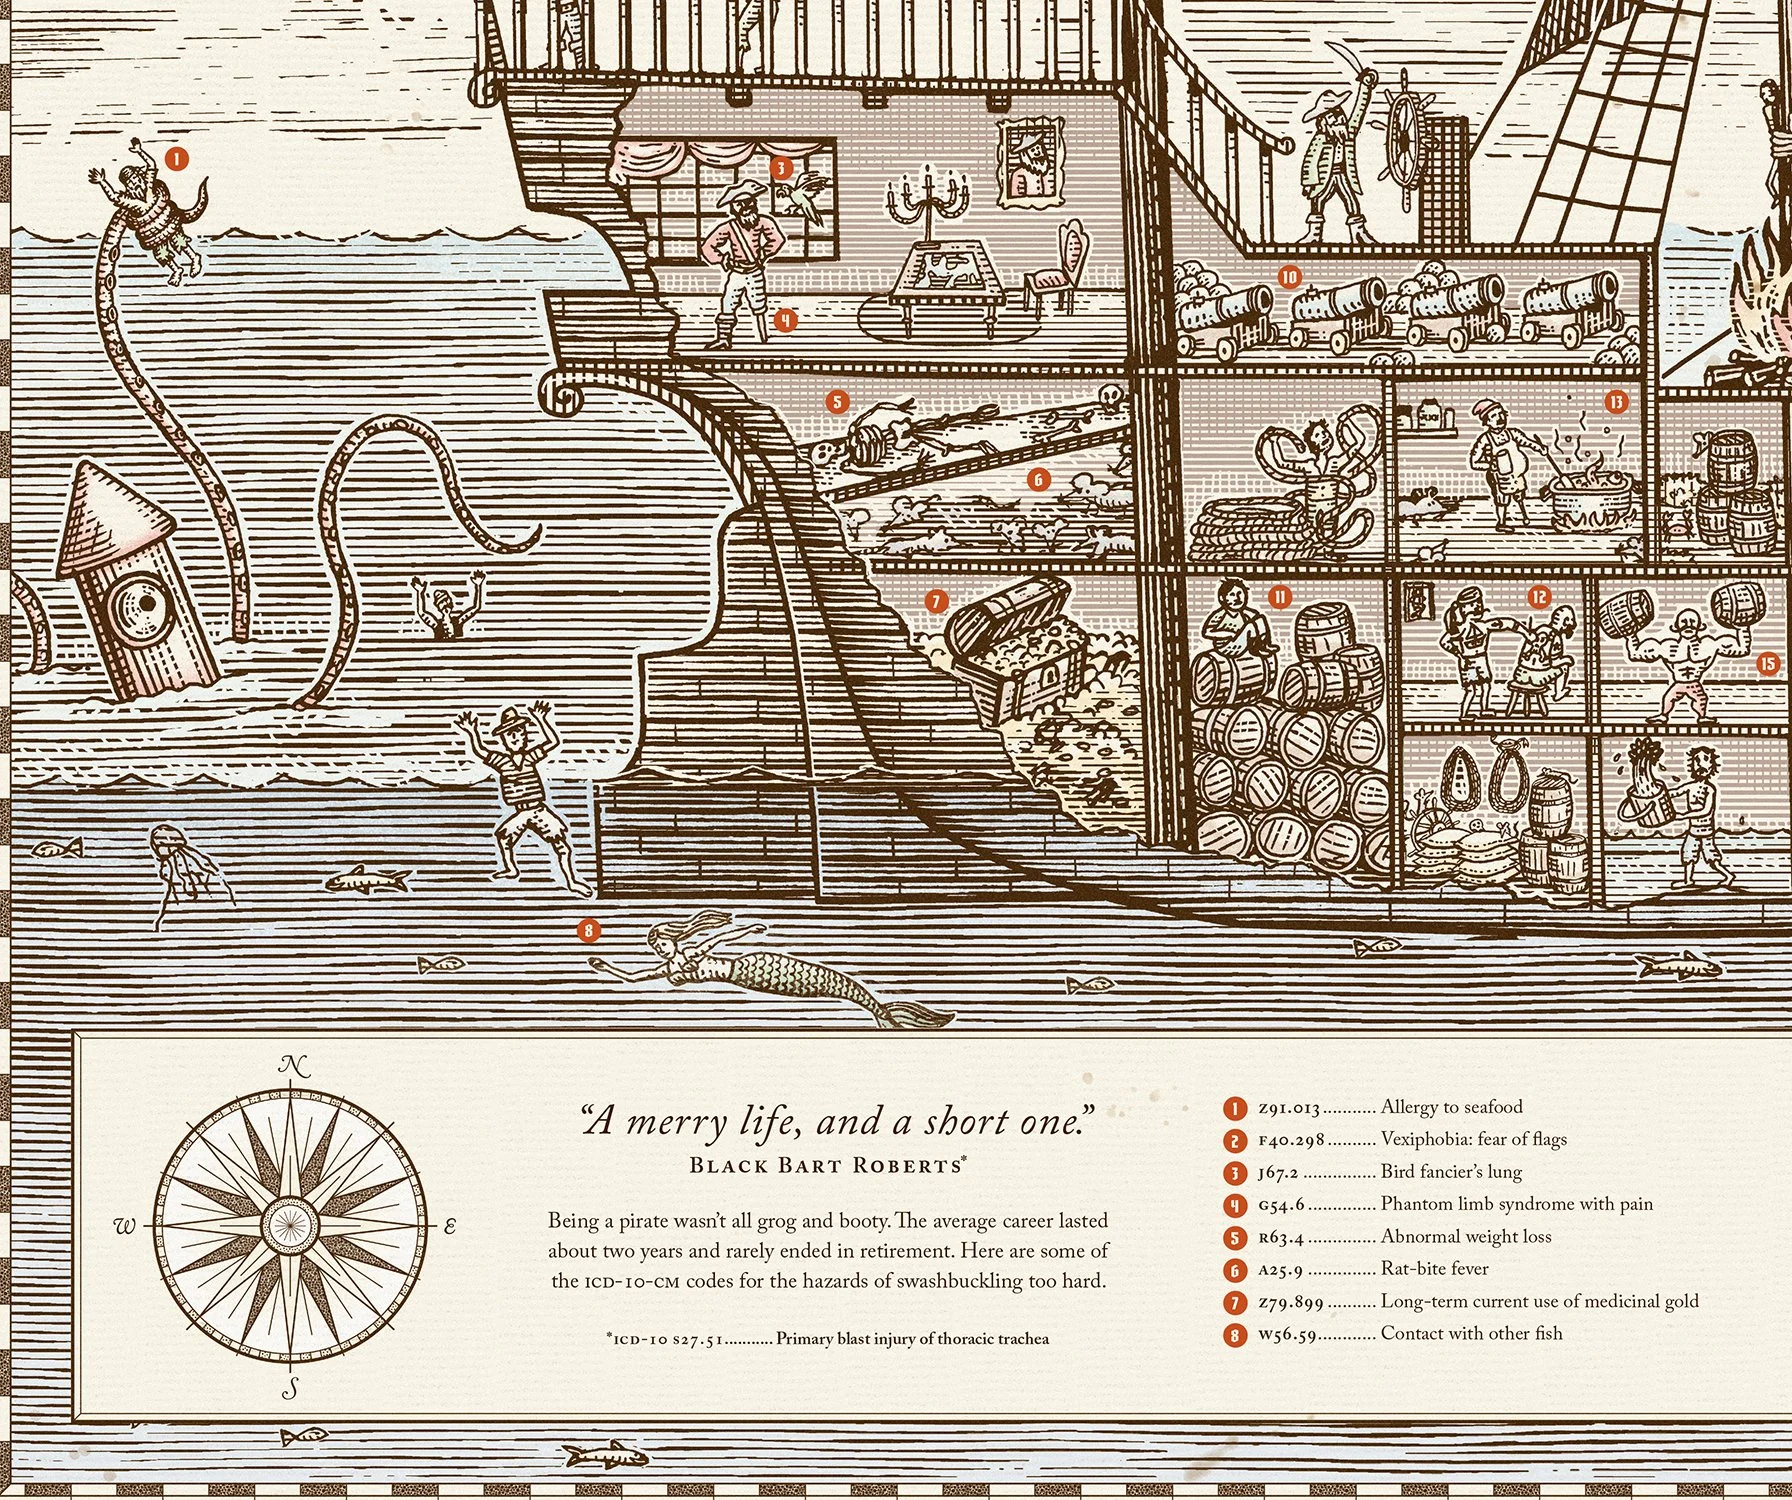 1
3
4
10
5
13
6
7
11
12
15
8
N
W
E
S
“A merry life, and a short one.”
Black Bart Roberts*
Being a pirate wasn’t all grog and booty. The average career lasted
about two years and rarely ended in retirement. Here are some of
the ICD-10-CM codes for the hazards of swashbuckling too hard.
*ICD-10 S27.51........... Primary blast injury of thoracic trachea
1 Z91.013........... Allergy to seafood
2 F40.298.......... Vexiphobia: fear of flags
3 J67.2 ............... Bird fancier’s lung
4 G54.6.............. Phantom limb syndrome with pain
5 R63.4 .............. Abnormal weight loss
6 A25.9 .............. Rat-bite fever
7 Z79.899.......... Long-term current use of medicinal gold
8 W56.59............ Contact with other fish